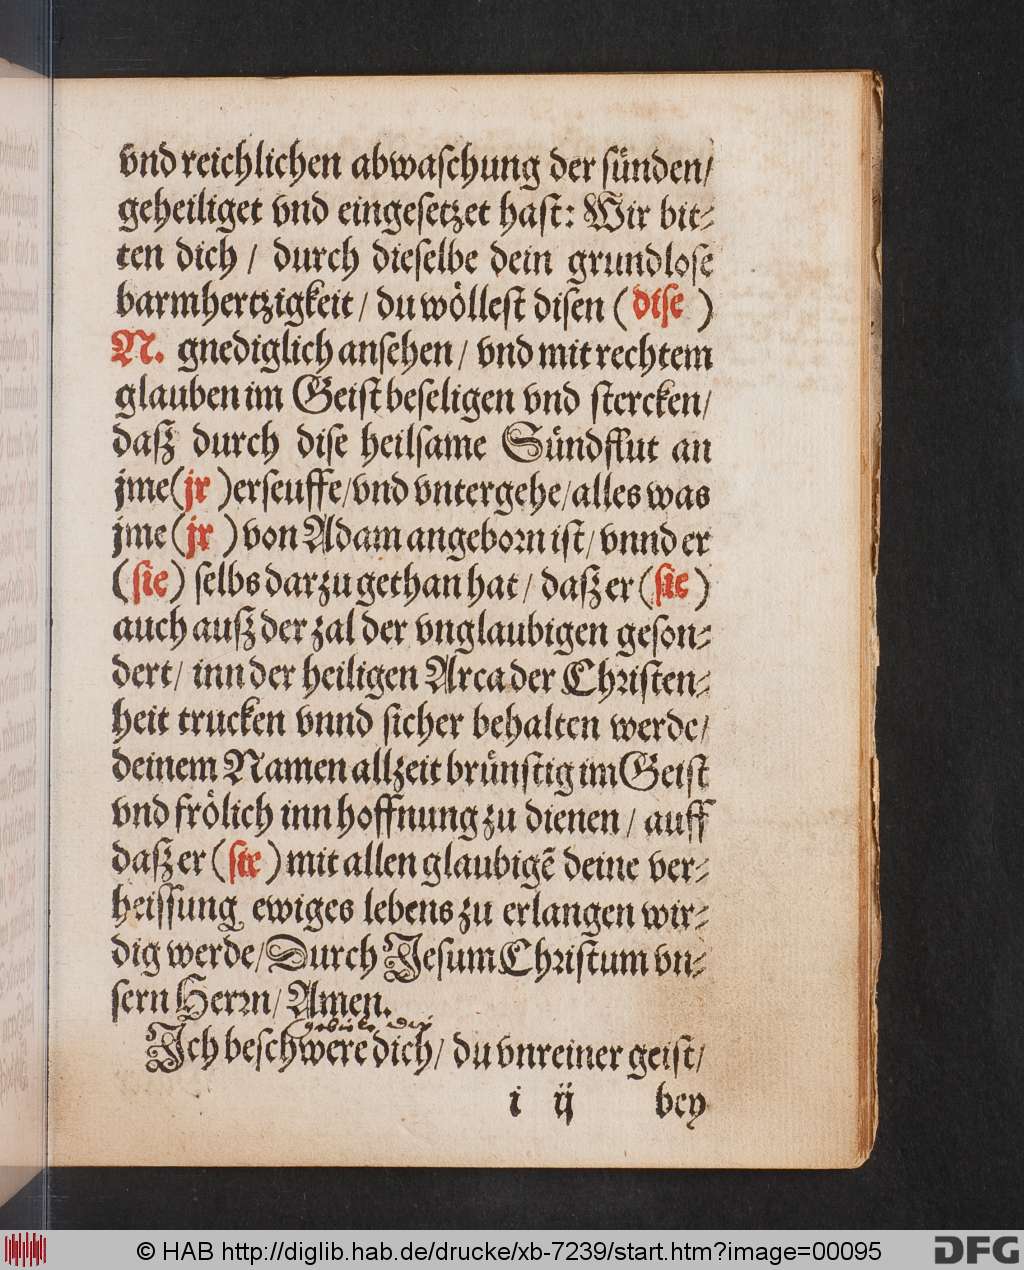 vnd reichlichen abwaschung der sünden/
geheiliget vnd eingesetzet hast: Wir bit-
ten dich / durch dieselbe dein grundlose
barmhertzigkeit / du wöllest disen (dise)
N. gnediglich ansehen / vnd mit rechtem
glauben im Geist beseligen vnd stercken/
dasz durch dise heilsame Sündflut an
jme (jr) erseuffe/vnd vntergehe/alles was
jme (jr) von Adam angeborn ist/ vnnd er
(sie) selbs darzu gethan hat / dasz er (sie)
auch ausz der zal der vnglaubigen geson-
dert/ inn der heiligen Arca der Christen-
heit trucken vnnd sicher behalten werde/
deinem Namen allzeit brünstig im Geist
vnd frölich inn hoffnung zu dienen / auff
dasz er (sie) mit allen glaubigē deine ver-
heissung ewiges lebens zu erlangen wir-
dig werde/Durch Jesum Christum vn-
sern Herrn/ Amen.
gebiete dir
Ich beschwere dich/ du vnreiner geist/
i ij bey
© HAB http://diglib.hab.de/drucke/xb-7239/start.htm?image=00095
DFG